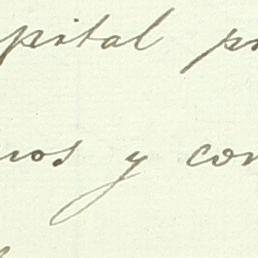 pital pr
nos y con